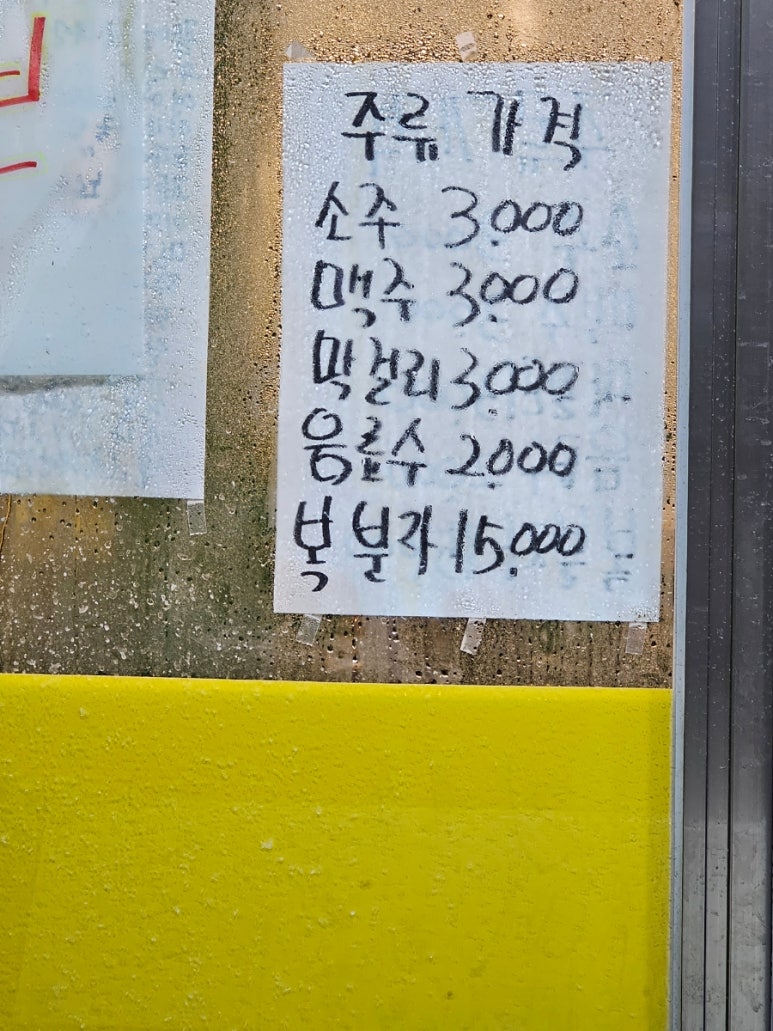 주류 가격
소주 3.000
맥주 3.000
막걸리 3.000
음료수 2.000
복분자 15.000